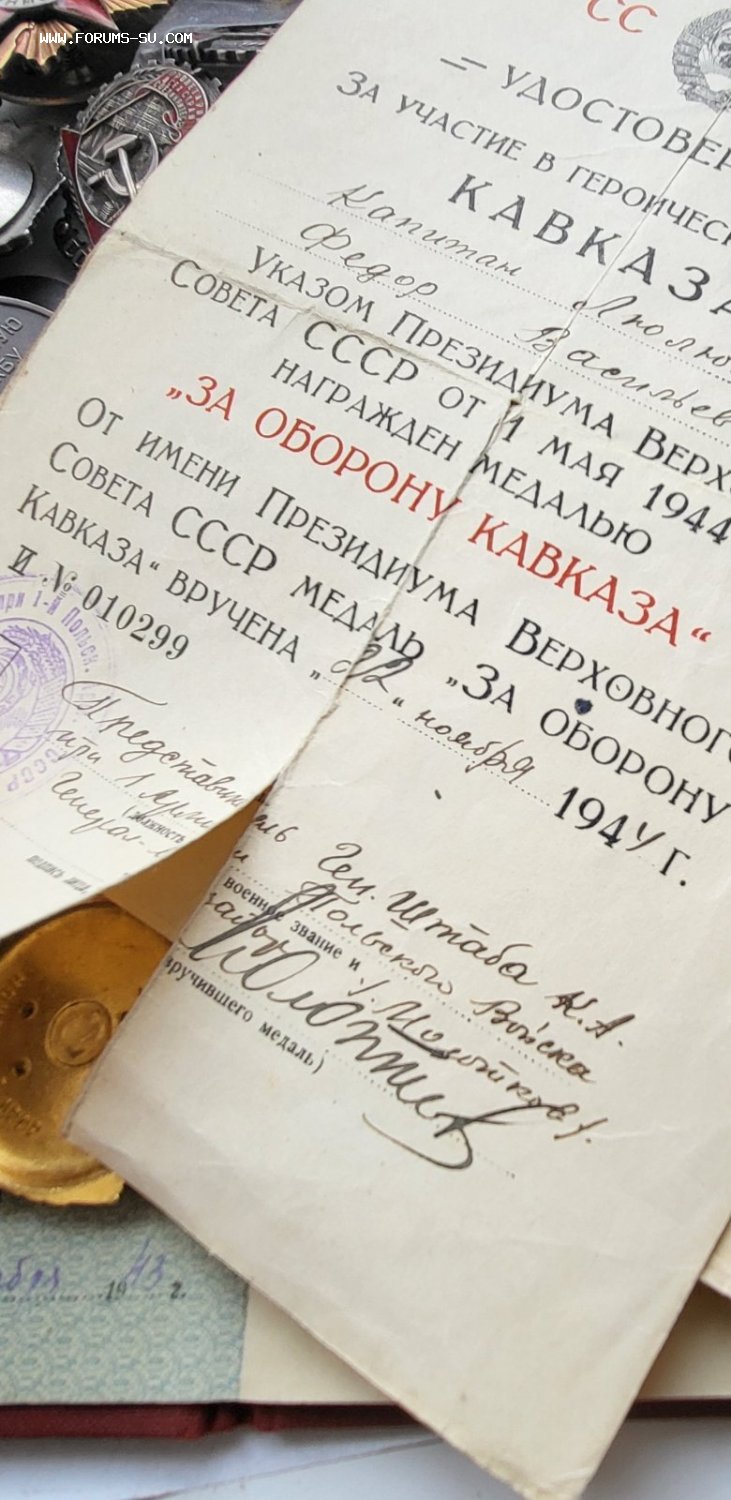 WWW.FORUMS-SU.COM
СС
УДОСТОВЕР
ЗА УЧАСТИЕ В ГЕРОИЧЕСК
КАВКАЗА
Капитан Люлю
Федор Васильев
УКАЗОМ ПРЕЗИДИУМА ВЕРХО
СОВЕТА СССР ОТ 1 МАЯ 1944
НАГРАЖДЕН МЕДАЛЬЮ
„ЗА ОБОРОНУ КАВКАЗА“
ОТ ИМЕНИ ПРЕЗИДИУМА ВЕРХОВНОГО
СОВЕТА СССР МЕДАЛЬ „ЗА ОБОРОНУ
КАВКАЗА“ ВРУЧЕНА „22“ ноября 1944 г.
И № 010299
при 1-й Польск.
СССР
Представитель Ген. Штаба К.А.
при 1 Арми и Польского Войска
(должность военное звание и
Генерал-майор /Молотков/.
вручившего медаль)
бря 1943 г.